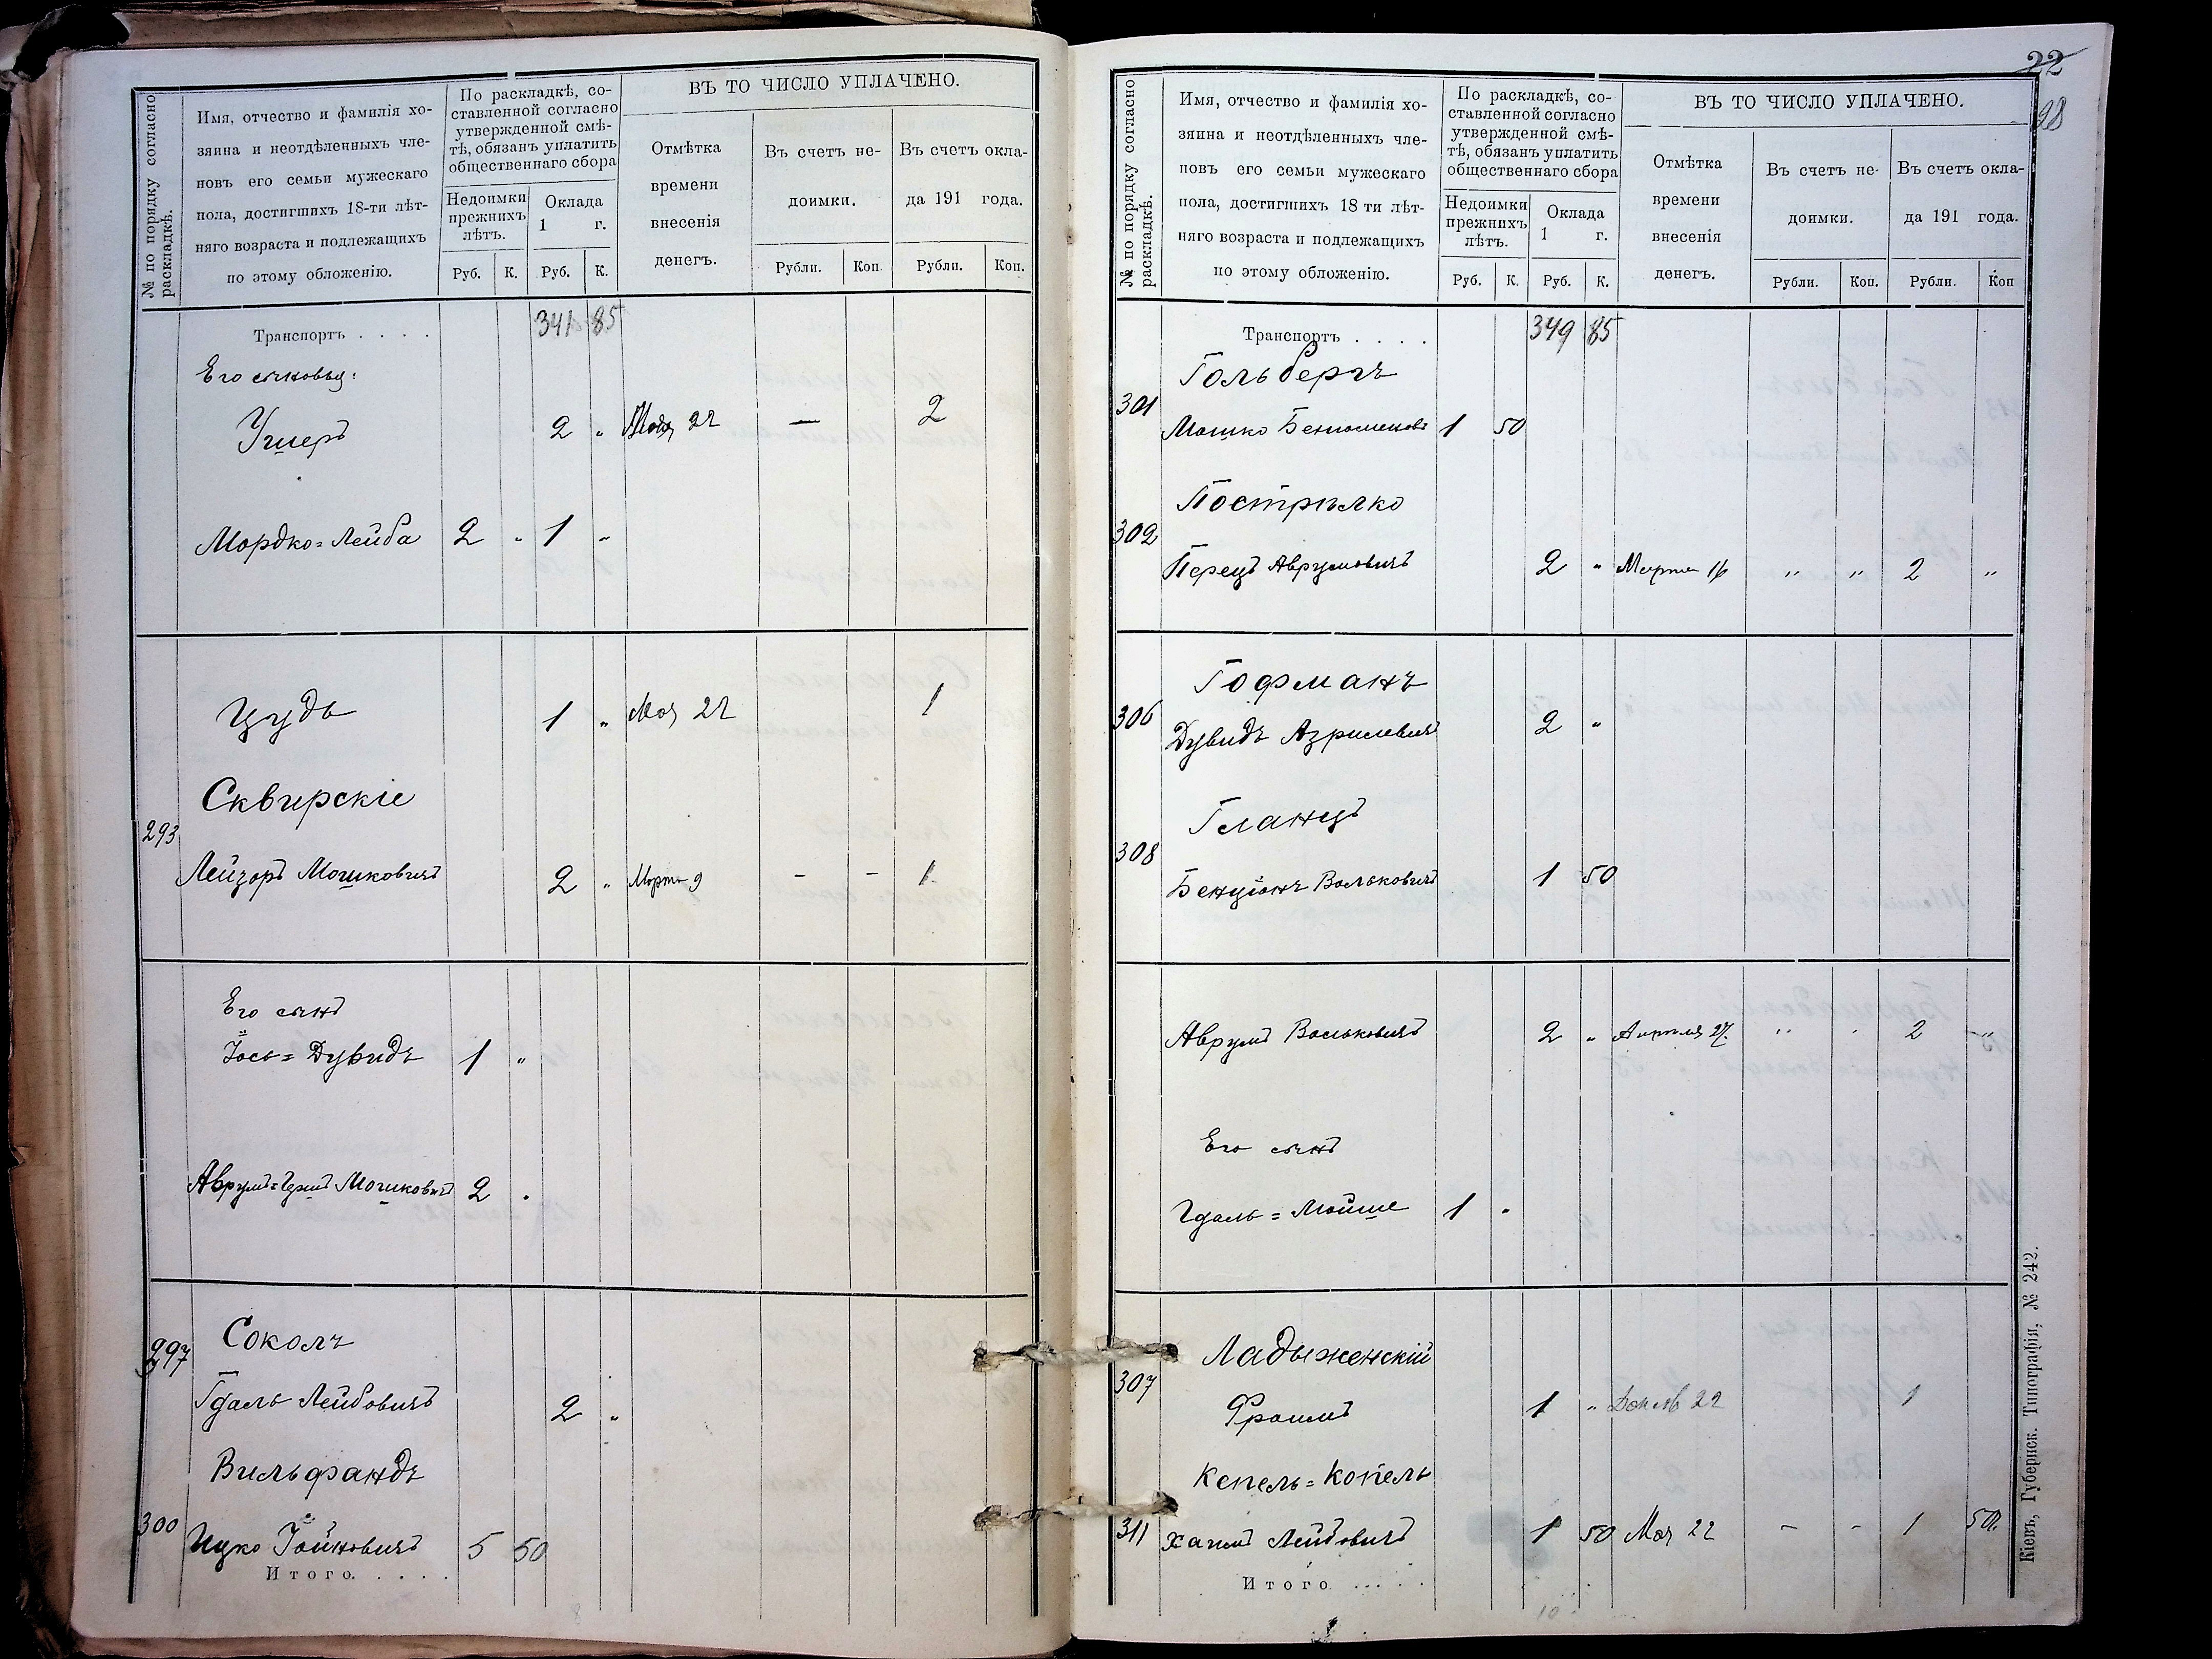 № по порядку согласно раскладкѣ.
Имя, отчество и фамилія хо-
зяина и неотдѣленныхъ чле-
новъ его семьи мужескаго
пола, достигшихъ 18-ти лѣт-
няго возраста и подлежащихъ
по этому обложенію.
По раскладкѣ, со-
ставленной согласно
утвержденной смѣ-
тѣ, обязанъ уплатить
общественнаго сбора
Недоимки
прежнихъ
лѣтъ.
Оклада
1 г.
Руб. К. Руб. К.
ВЪ ТО ЧИСЛО УПЛАЧЕНО.
Отмѣтка
времени
внесенія
денегъ.
Въ счетъ не-
доимки.
Въ счетъ окла-
да 191 года.
Рубли. Коп. Рубли. Коп.
Транспортъ . . . . 341 85
Его сыновья:
Ушеръ 2 " Мая 22 — 2
Мордко=Лейба 2 " 1 "
Цудь 1 " Мая 22 1
Сквирскіе
293
Лейзоръ Мошковичъ 2 " Марта 9 - - 1
Его сынъ
Іось=Дувидъ 1 "
Аврумъ= Мошковичъ 2 "
Соколъ
297
Гдаль Лейбовичъ 2 "
Вильфандъ
300
Ицко Іойновичъ 5 50
Итого. . . . .
8
22
98
№ по порядку согласно раскладкѣ.
Имя, отчество и фамилія хо-
зяина и неотдѣленныхъ чле-
новъ его семьи мужескаго
пола, достигшихъ 18 ти лѣт-
няго возраста и подлежащихъ
по этому обложенію.
По раскладкѣ, со-
ставленной согласно
утвержденной смѣ-
тѣ, обязанъ уплатить
общественнаго сбора
Недоимки
прежнихъ
лѣтъ.
Оклада
1 г.
Руб. К. Руб. К.
ВЪ ТО ЧИСЛО УПЛАЧЕНО.
Отмѣтка
времени
внесенія
денегъ.
Въ счетъ не-
доимки.
Въ счетъ окла-
да 191 года.
Рубли. Коп. Рубли. Коп
Транспортъ . . . . 349 85
Гольбергъ
301
Мошко Беньоминовъ 1 50
Пострѣлко
302
Перецъ Аврумовичъ 2 " Марта 16 " " 2 "
Гофманъ
306
Дувидъ Азрилевичъ 2 "
Гланцъ
308
Бенціонъ Вольковичъ 1 50
Аврумъ Вольковичъ 2 " Апрѣля 27. " " 2 "
Его сынъ
Гдаль=Мойше 1 "
Ладыженскій
307
Фроимъ 1 " 22 1
Кепель=Копель
311
Хаимъ Лейбовичъ 1 50 Мая 22 - - 1 50
Итого . . . . .
10
Кіевъ, Губернск. Типографія, № 242.